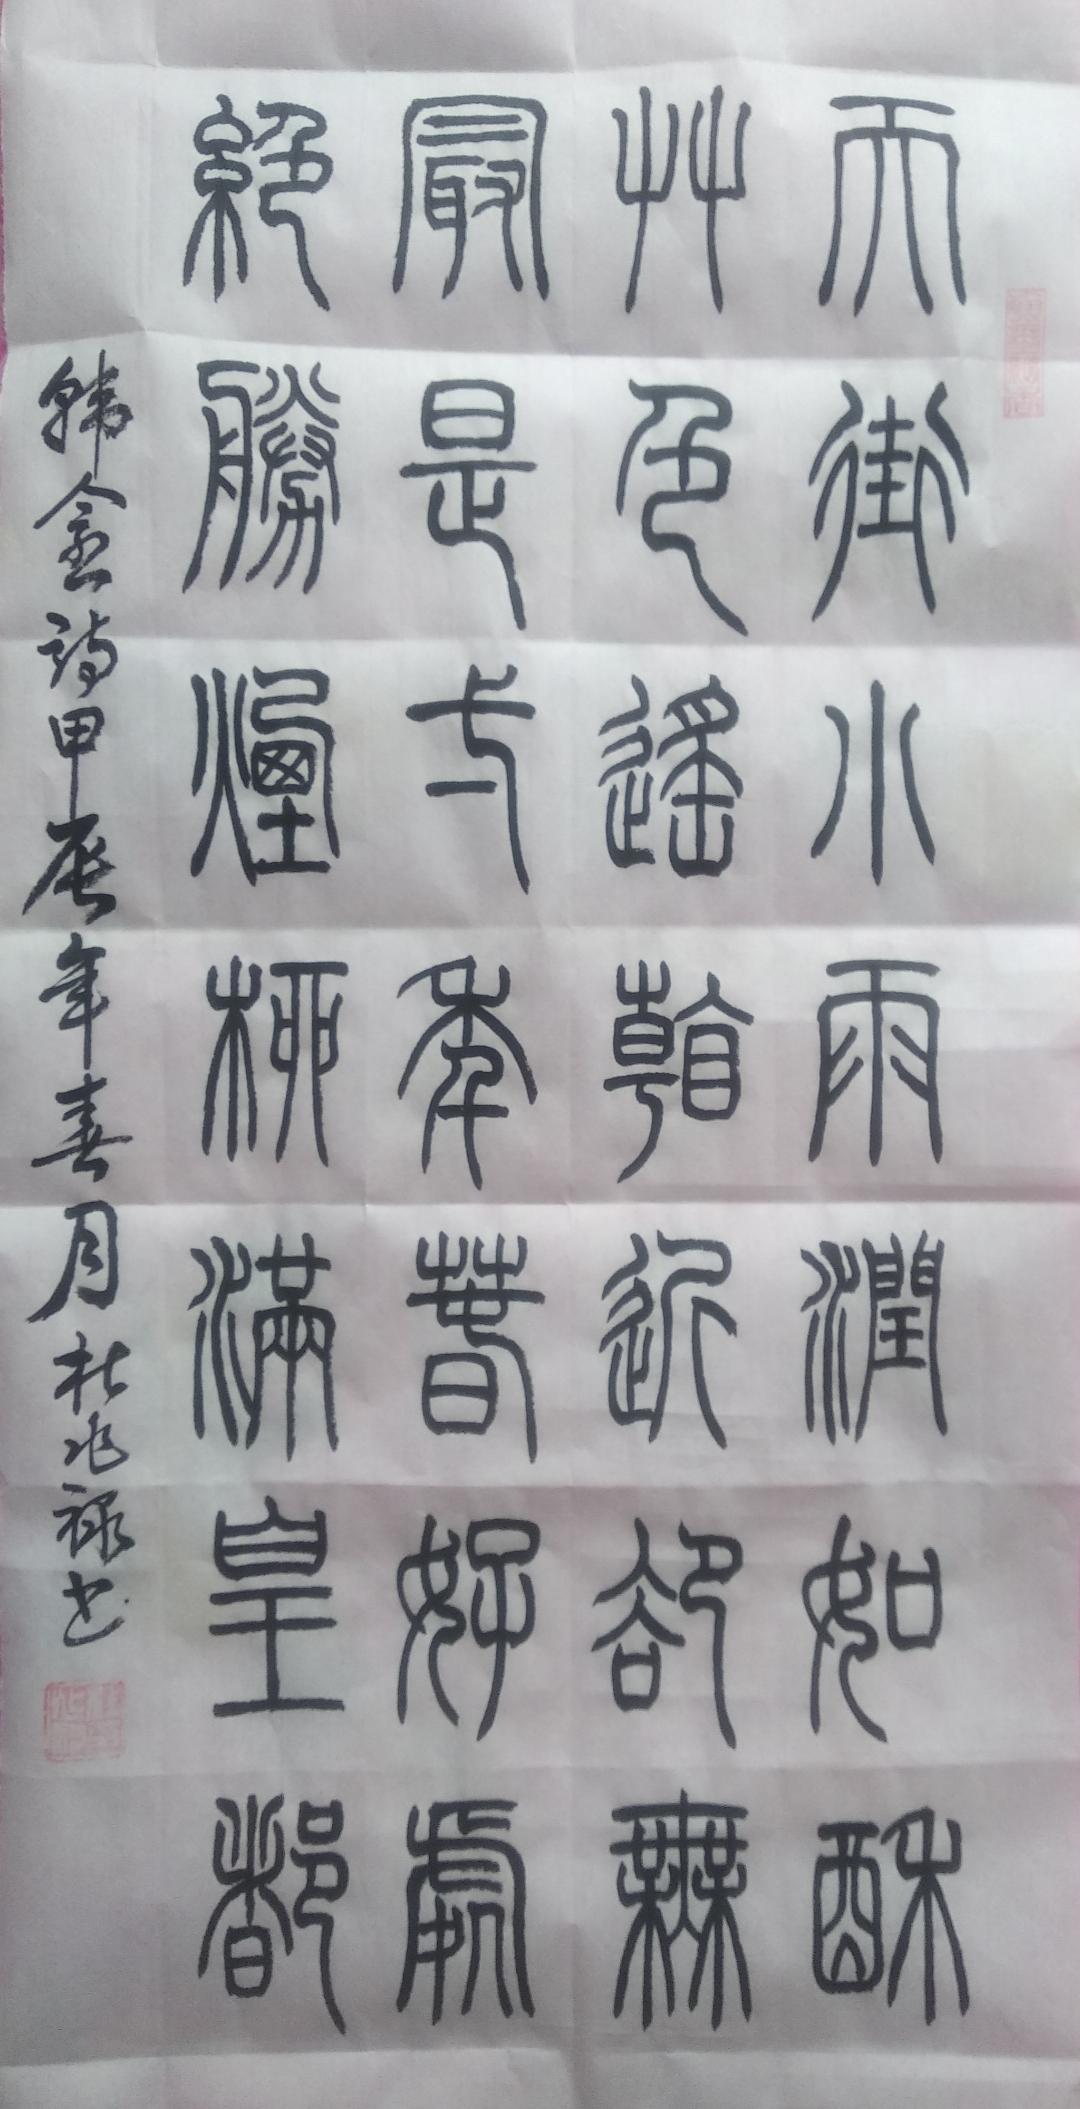 天街小雨潤如酥
艸色遙看近卻無
最是弌年春好處
絕勝煙柳滿皇都
韓愈詩甲辰年春月杜兆祿书